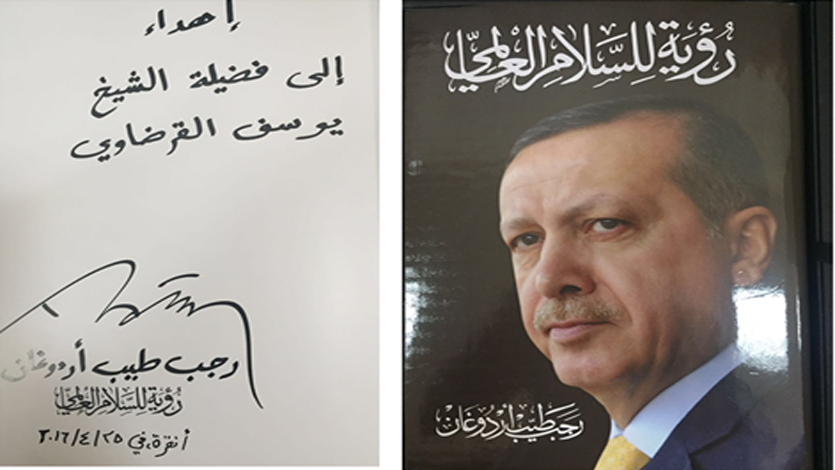 إهداء
إلى فضيلة الشيخ
يوسف القرضاوي
رجب طيب أردوغان
رؤية للسلام العالمي
أنقرة، في ٢٠١٦/٤/٢٥
رُؤيَة لِلسَّلَامِ العَالَمِيّ
رجب طيب أردوغان